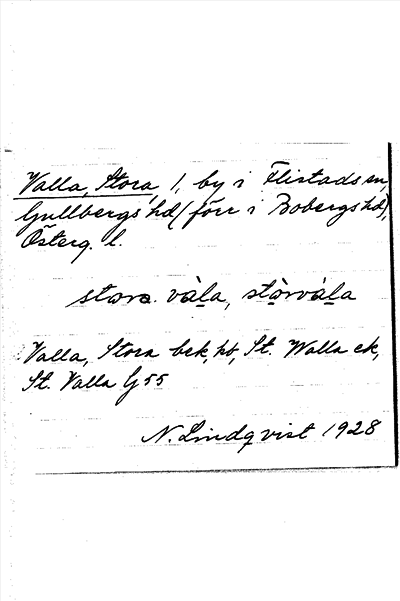 Valla, Stora, 1, by i Flistads sn,
Gullbergs hd (förr i Bobergs hd),
Österg. l.
stora vàla, stòrvàla
Valla, Stora bek, kb, St. Walla ek,
St. Valla G 55
N. Lindqvist 1928